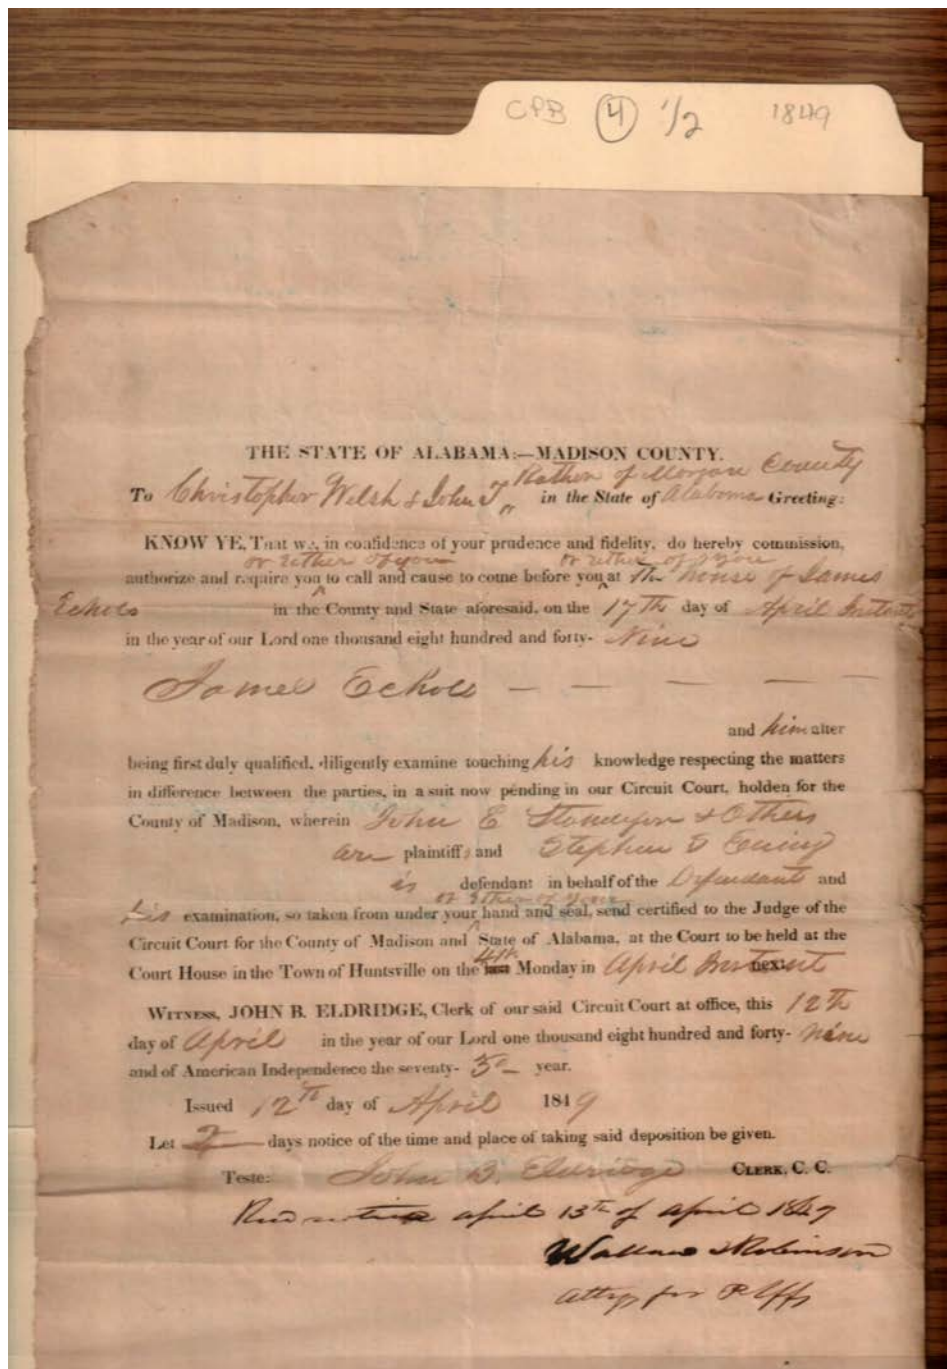 CPB 4 1/2 1849
THE STATE OF ALABAMA:—MADISON COUNTY.
Rather of Morgan County
To Christopher Welsh & John T, in the State of Alabama Greeting:
KNOW YE, That we, in confidence of your prudence and fidelity, do hereby commission,
or either of you or either of you
authorize and require you to call and cause to come before you at the house of James
Echols in the County and State aforesaid, on the 17th day of April Instant
in the year of our Lord one thousand eight hundred and forty- Nine
James Echols — — — — —
and him after
being first duly qualified, diligently examine touching his knowledge respecting the matters
in difference between the parties, in a suit now pending in our Circuit Court, holden for the
County of Madison, wherein John E & Others
are plaintiffs and Stephen S Ewing
is defendant in behalf of the Defendant and
or either of you
his examination, so taken from under your hand and seal, send certified to the Judge of the
Circuit Court for the County of Madison and State of Alabama, at the Court to be held at the
4th
Court House in the Town of Huntsville on the Monday in April Instant next.
WITNESS, JOHN B. ELDRIDGE, Clerk of our said Circuit Court at office, this 12th
day of April in the year of our Lord one thousand eight hundred and forty- nine
and of American Independence the seventy- 3d year.
Issued 12th day of April 1849
Let 2 days notice of the time and place of taking said deposition be given.
Teste: John B. Eldridge CLERK, C. C.
notice april 13th of april 1849
Wallace & Robinson
attys for Plffs